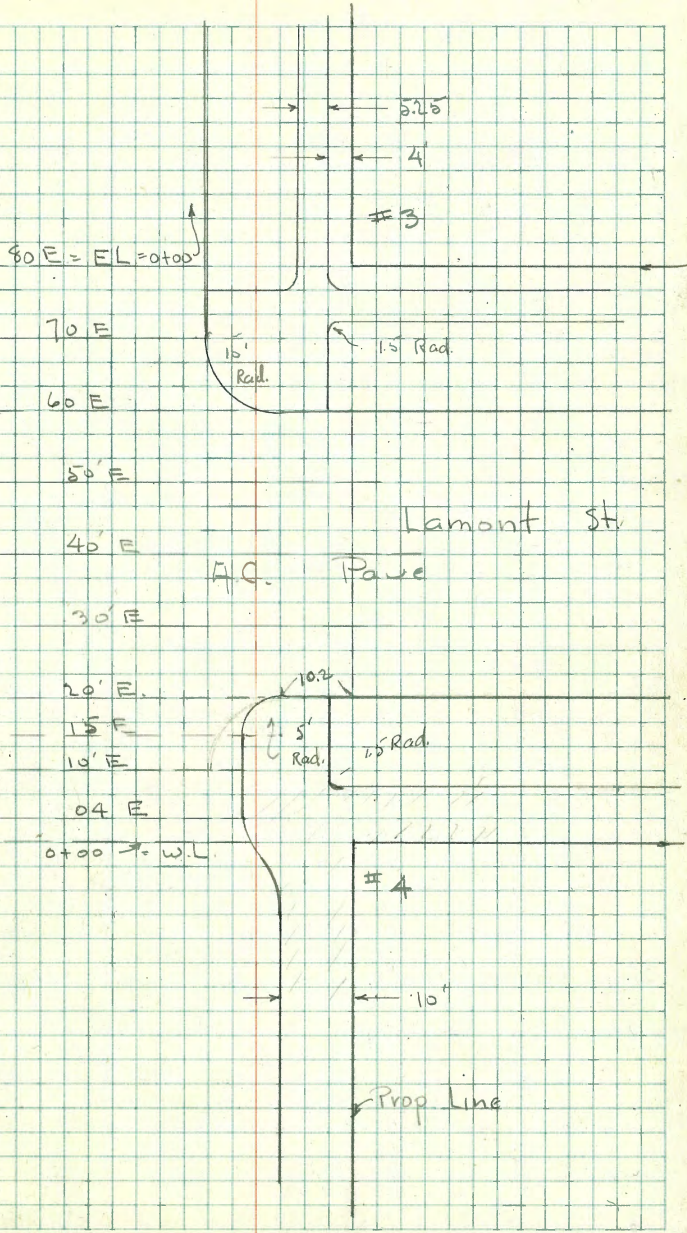 5.25
4'
#3
80 E = EL = 0+00
70 E
15' Rad.
1.5 Rad.
60 E
50' E
Lamont St.
40' E
A.C. Pave
30' E
10.2
20' E.
15 E
5' Rad.
1.5 Rad.
10' E
04 E
0+00 → = W.L
#4
10'
Prop Line